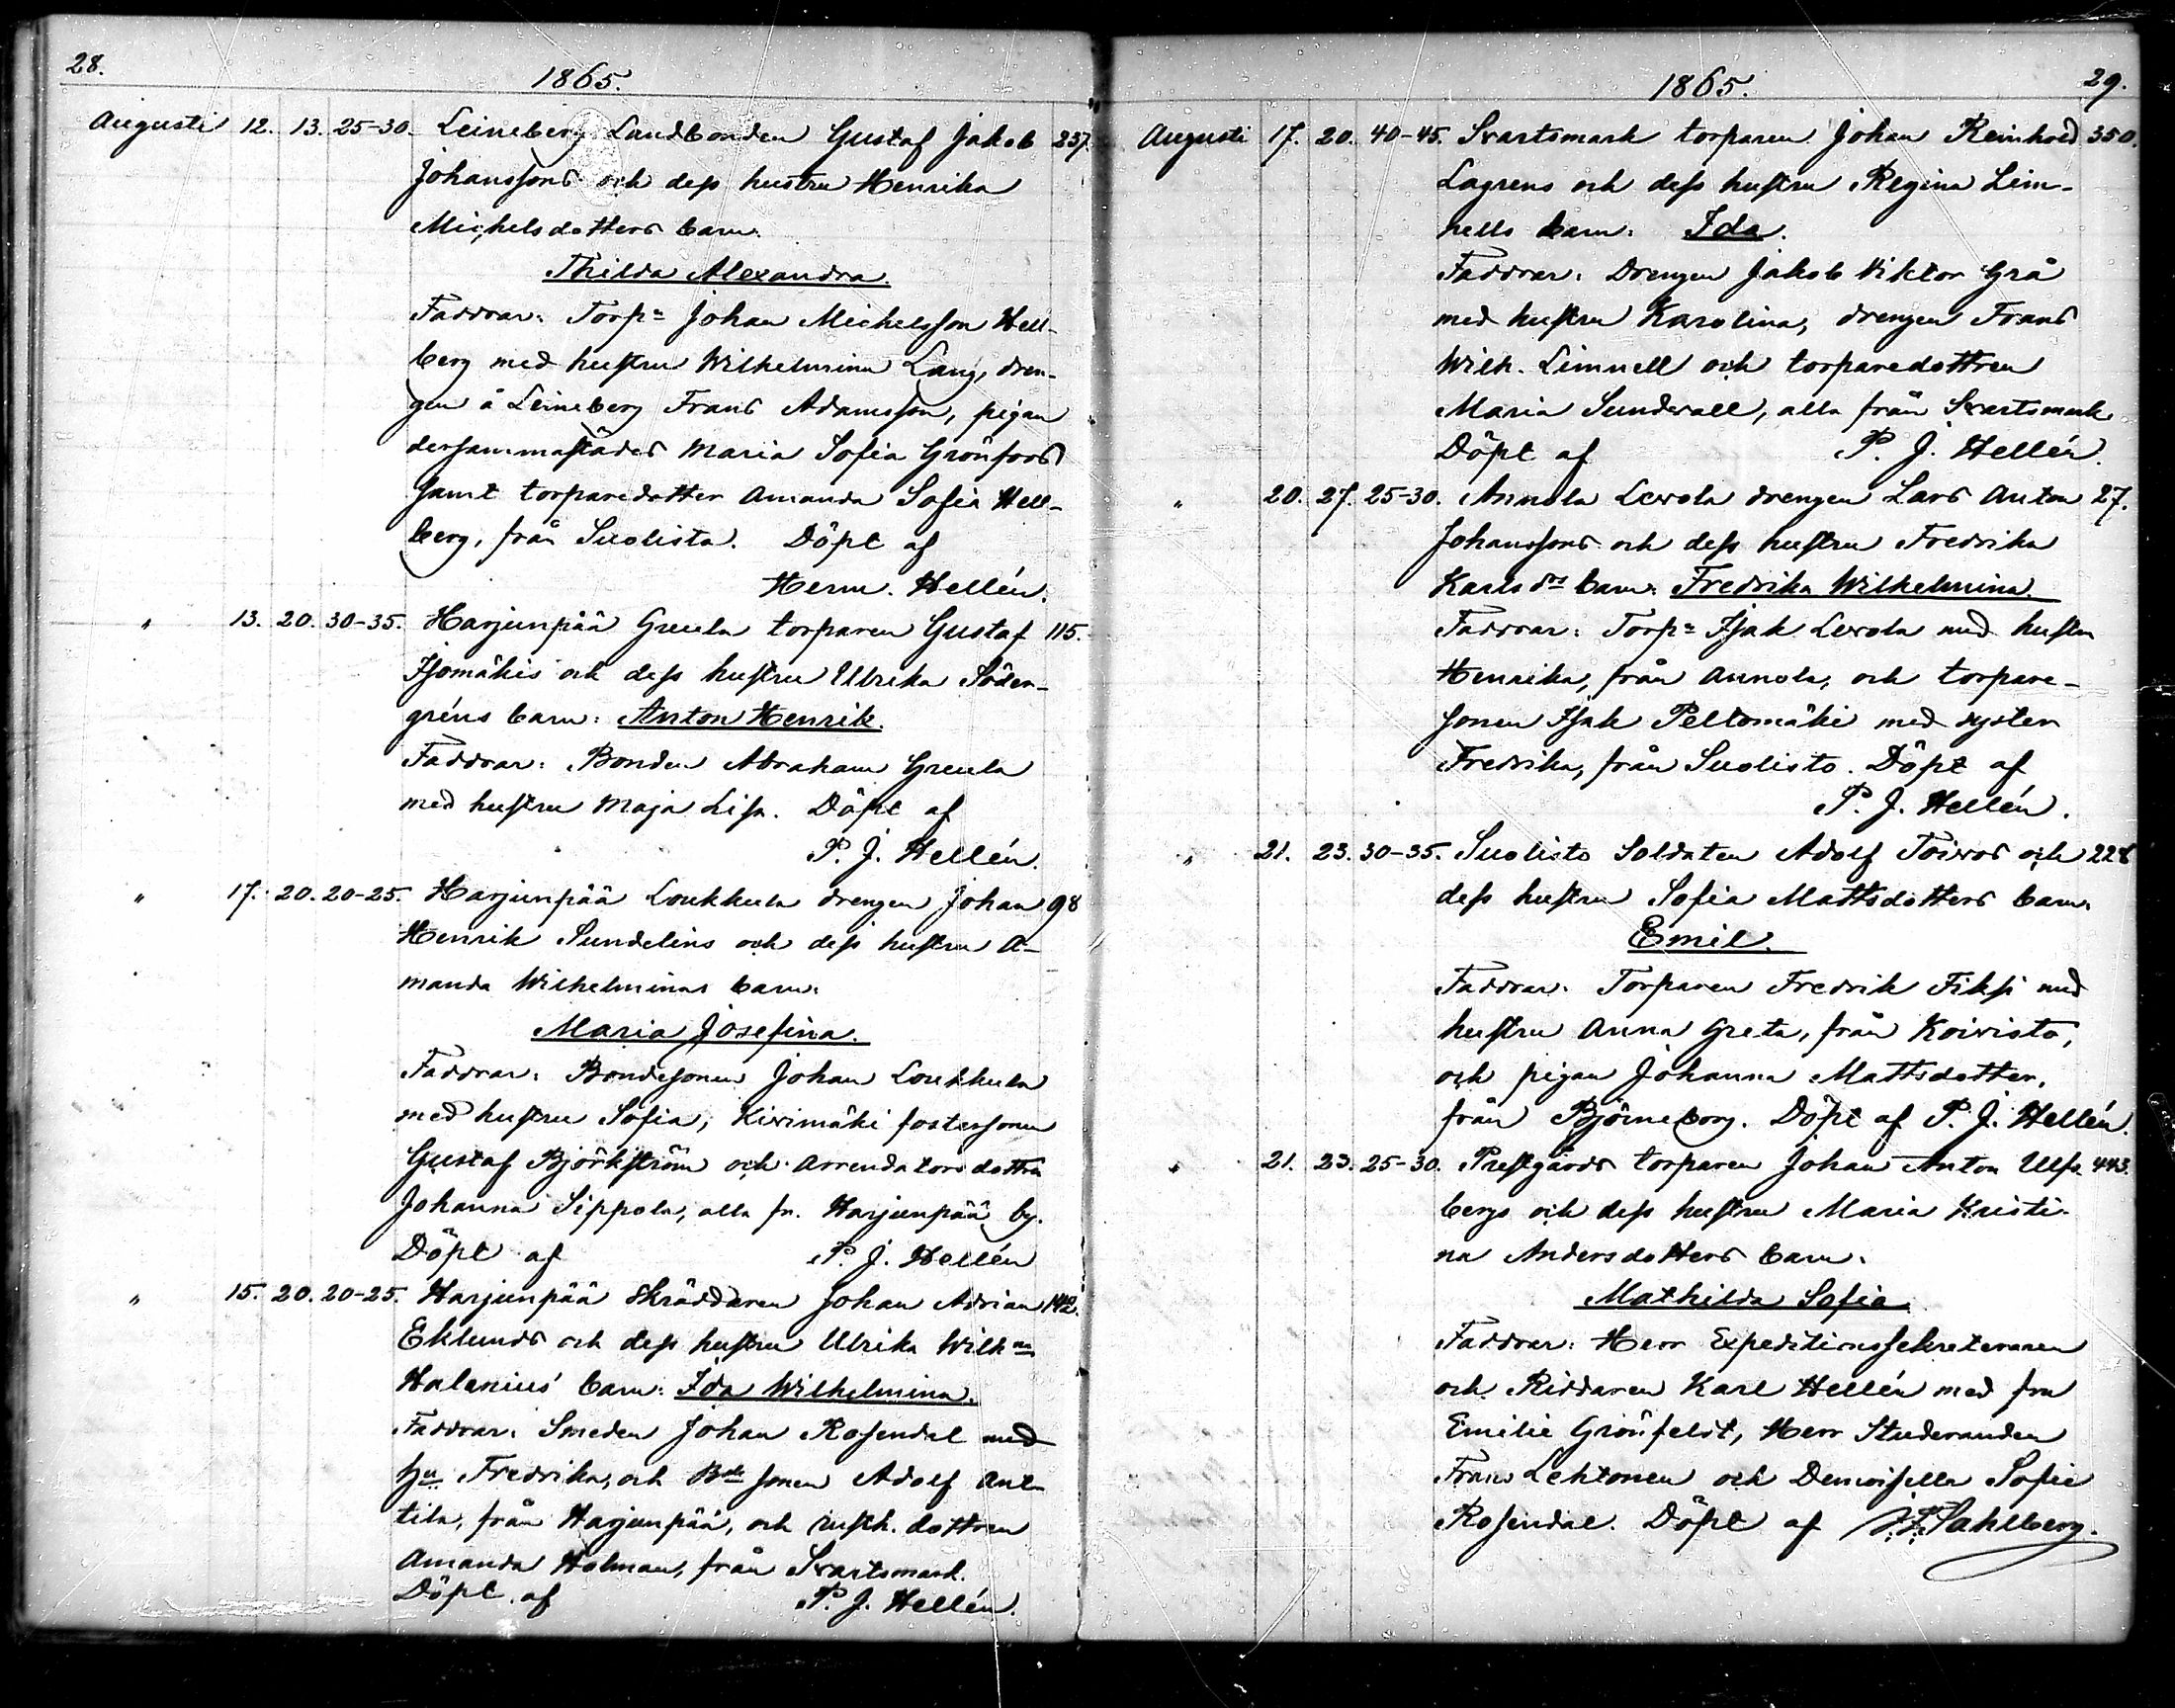 28.
1865.
Augusti 12. 13. 25-30. Leineberg Landbonden Gustaf Jakob 237.
Johanssons och dess hustru Henrika
Michelsdotters barn.
Thilda Alexandra.
Faddrar: Torpn Johan Michelsson Hell-
berg med hustru Wilhelmina Lang, dren-
gen å Leineberg Frans Adamsson, pigan
dersammastädes Maria Sofia Grönfors
samt torparedotter Amanda Sofia Hell-
berg, från Suolista. Döpt af
Herm. Hellén.
" 13. 20. 30-35. Harjunpää Greula torparen Gustaf 115.
Isomäkis och dess hustru Ulrika Söder-
gréns barn: Anton Henrik.
Faddrar: Bonden Abraham Greula
med hustru Maja Lisa. Döpt af
P. J. Hellén.
" 17. 20. 20-25. Harjunpää Loukkula drengen Johan 98
Henrik Sundelins och dess hustru A-
manda Wilhelminas barn:
Maria Josefina.
Faddrar: Bondesonen Johan Loukkula
med hustru Sofia, Kivimäki fostersonen
Gustaf Björkström och arrendatorsdottra
Johanna Sippola, alla fr. Harjunpää by.
Döpt af P. J. Hellén
" 15. 20. 20-25. Harjunpää Skräddaren Johan Adrian 142.
Eklunds och dess hustru Ulrika Wilhna
Halenius' barn: Ida Wilhelmina.
Faddrar: Smeden Johan Rosendal med
hu Fredrika, och Bde sonen Adolf Ant-
tila, från Harjunpää, och rusth. dottren
Amanda Holman, från Svartsmark.
Döpt af P. J. Hellén.
1865. 29.
Augusti 17. 20. 40-45. Svartsmark torparen Johan Reinhold 350.
Lagrens och dess hustru Regina Lim-
nells barn: Ida.
Faddrar: Drengen Jakob Viktor Grå
med hustru Karolina, drengen Frans
Wilh. Limnell och torparedottren
Maria Sundvall, alla från Svartsmark
Döpt af P. J. Hellén.
" 20. 27. 25-30. Annola Levola drengen Lars Anton 27.
Johanssons och dess hustru Fredrika
Karlsdrs barn: Fredrika Wilhelmina.
Faddrar: Torpn Isak Levola med hustru
Henrika, från Annola, och torpare-
sonen Isak Peltomäki med syster
Fredrika, från Suolisto. Döpt af
P. J. Hellén.
" 21. 23. 30-35. Suolisto Soldaten Adolf Toivos och 228
dess hustru Sofia Mattsdotters barn:
Emil.
Faddrar: Torparen Fredrik Fiksi med
hustru Anna Greta, från Koivisto,
och pigan Johanna Mattsdotter,
från Björneborg. Döpt af P. J. Hellén.
" 21. 23. 25-30. Prestgårds torparen Johan Anton Ulfs- 443.
bergs och dess hustru Maria Kristi-
na Andersdotters barn:
Mathilda Sofia.
Faddrar: Herr Expeditionssekreteraren
och Riddaren Karl Hellén med fru
Emilie Grönfeldt, Herr Studeranden
Frans Lehtonen och Demoiselle Sofie
Rosendal. Döpt af J. F. Sahlberg.